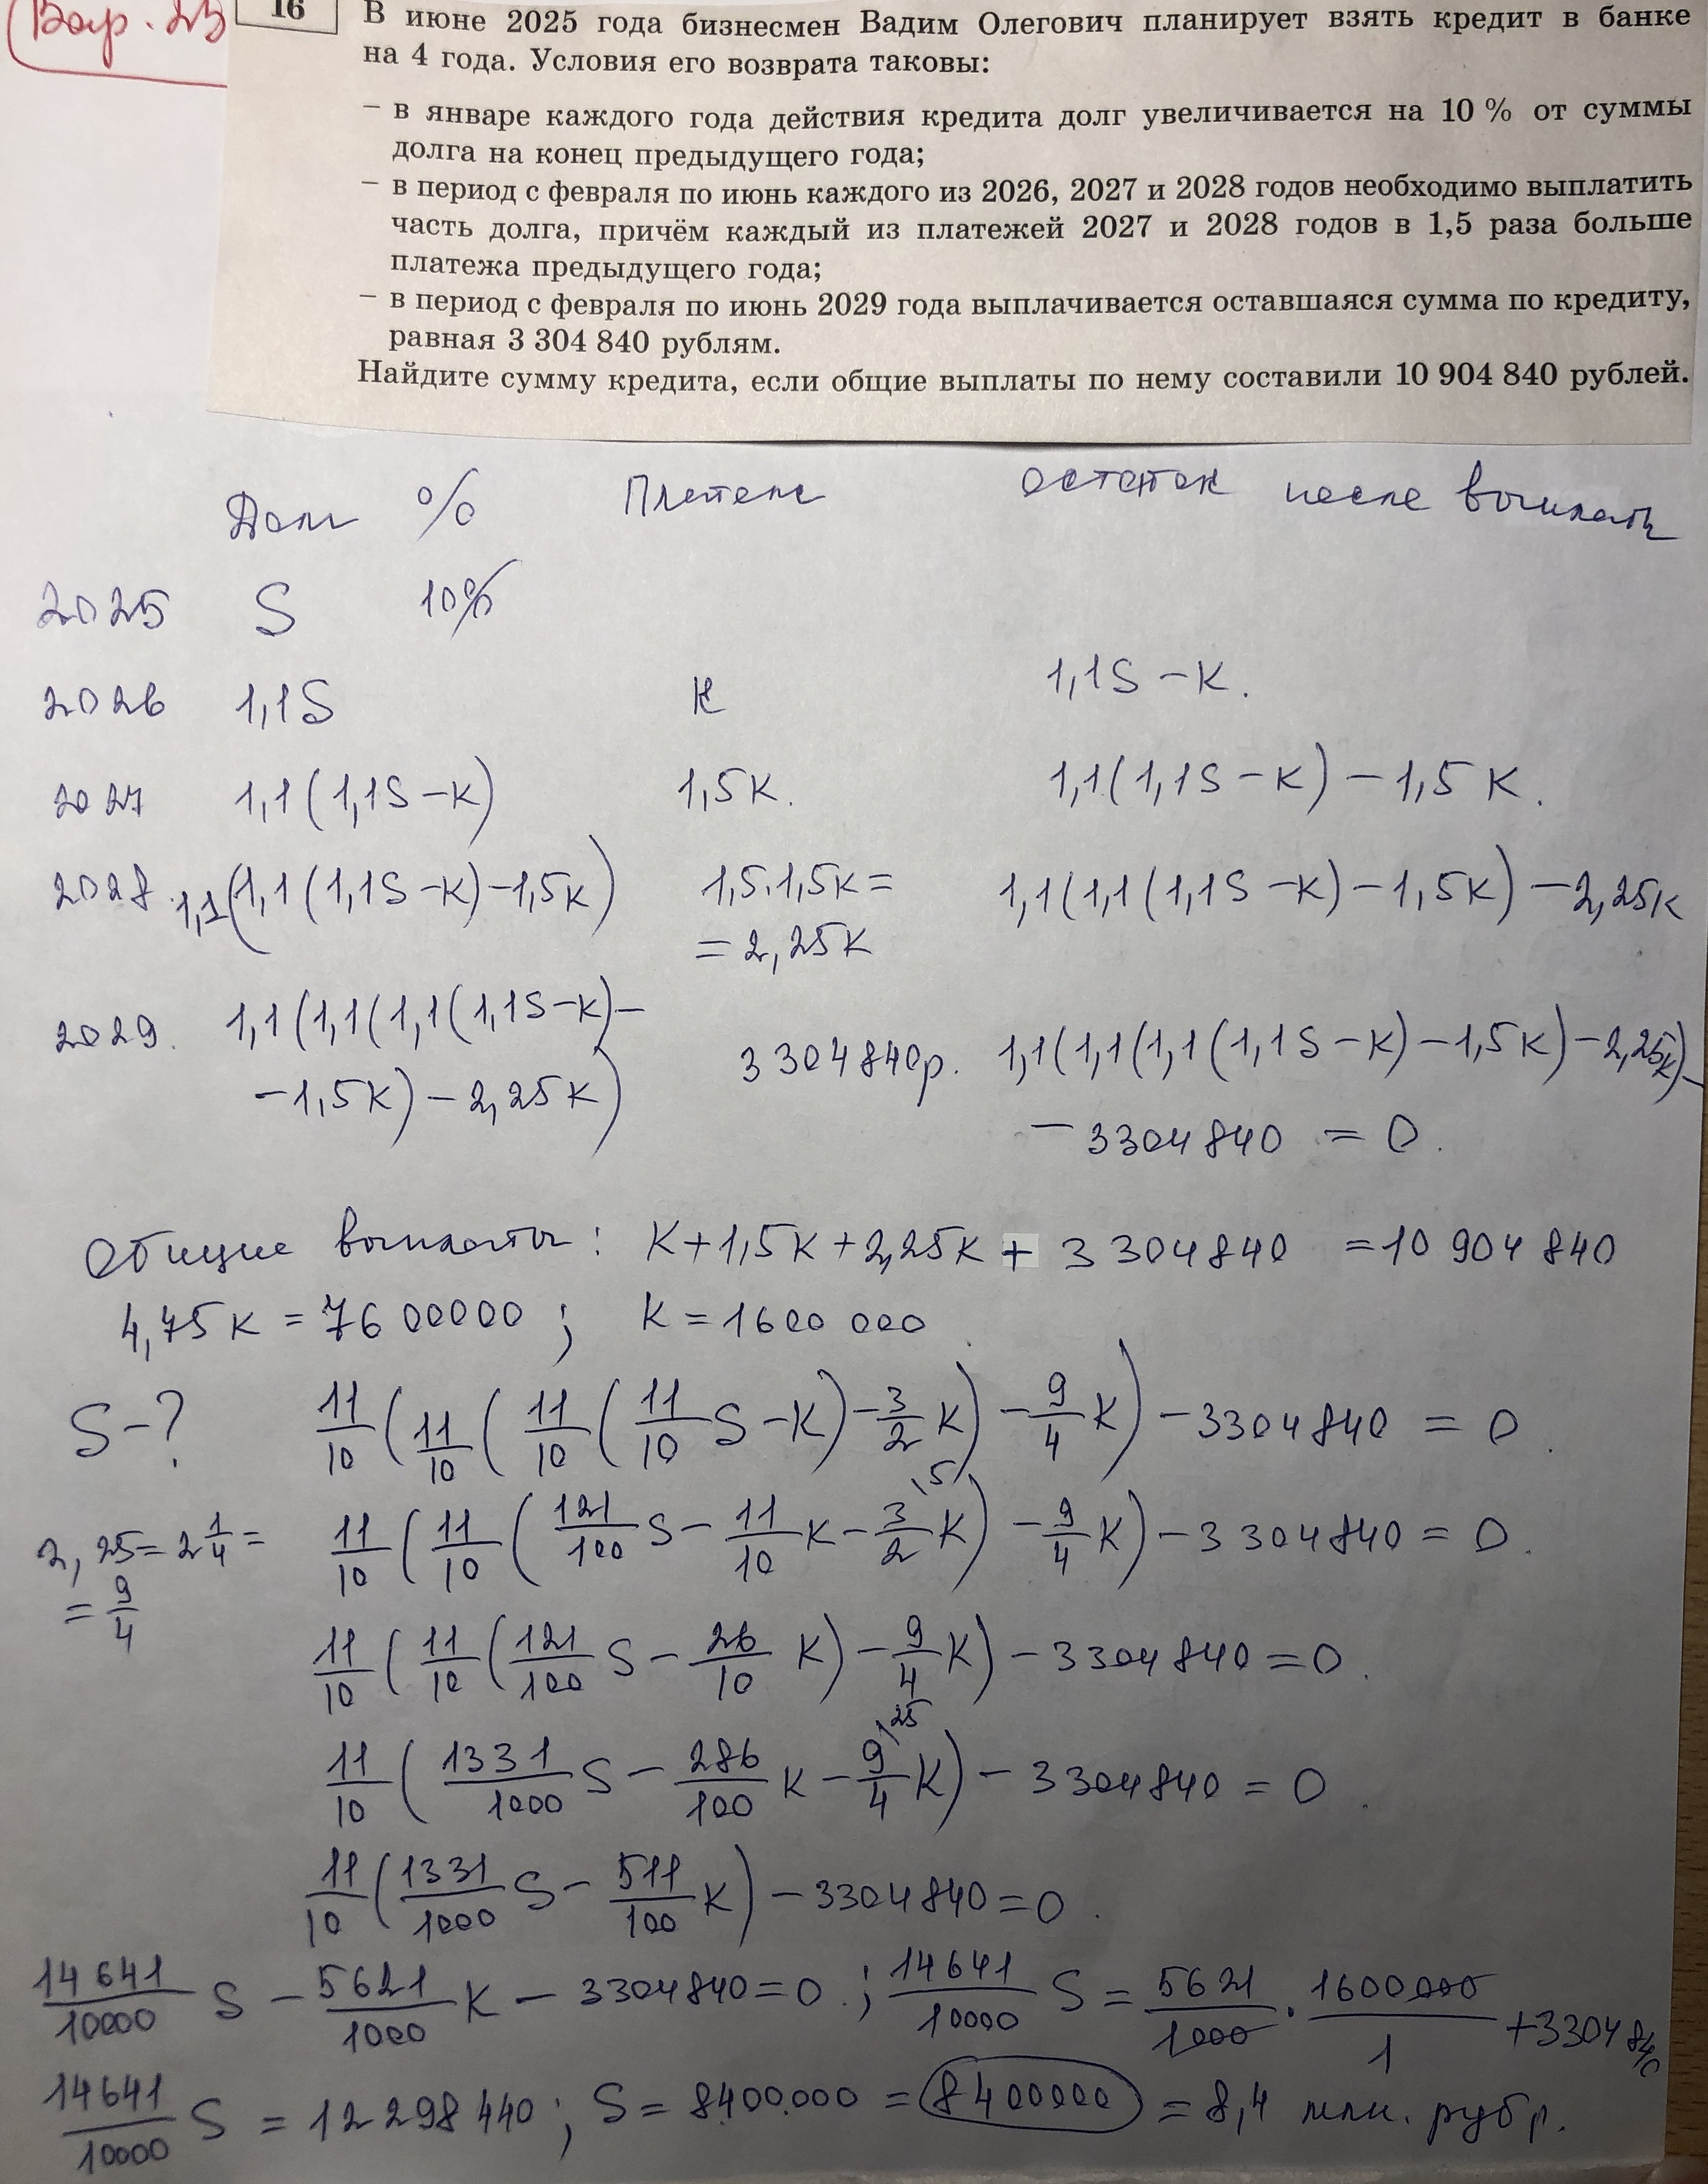 Вар. 23
16
В июне 2025 года бизнесмен Вадим Олегович планирует взять кредит в банке
на 4 года. Условия его возврата таковы:
– в январе каждого года действия кредита долг увеличивается на 10 % от суммы
долга на конец предыдущего года;
– в период с февраля по июнь каждого из 2026, 2027 и 2028 годов необходимо выплатить
часть долга, причём каждый из платежей 2027 и 2028 годов в 1,5 раза больше
платежа предыдущего года;
– в период с февраля по июнь 2029 года выплачивается оставшаяся сумма по кредиту,
равная 3 304 840 рублям.
Найдите сумму кредита, если общие выплаты по нему составили 10 904 840 рублей.
Долг % Платеж остаток после выплаты
2025 S 10%
2026 1,1S K 1,1S – K.
2027 1,1(1,1S – K) 1,5K. 1,1(1,1S – K) – 1,5K.
2028. 1,1(1,1(1,1S – K) – 1,5K) 1,5.1,5K = 1,1(1,1(1,1S – K) – 1,5K) – 2,25K
= 2,25K
2029. 1,1(1,1(1,1(1,1S – K) – 3304840р. 1,1(1,1(1,1(1,1S – K) – 1,5K) – 2,25K) –
– 1,5K) – 2,25K) – 3304840 = 0.
Общие выплаты: K + 1,5K + 2,25K + 3304840 = 10 904 840
4,75K = 7600000; K = 1600 000
S – ? 11/10 (11/10 (11/10 (11/10 S – K) – 3/2 K) – 9/4 K) – 3304840 = 0.
2,25 = 2 1/4 = 11/10 (11/10 (121/100 S – 11/10 K – 3/2 \5 K) – 9/4 K) – 3304840 = 0.
= 9/4
11/10 (11/10 (121/100 S – 26/10 K) – 9/4 K) – 3304840 = 0.
11/10 (1331/1000 S – 286/100 K – 9/4 \25 K) – 3304840 = 0.
11/10 (1331/1000 S – 511/100 K) – 3304840 = 0.
14641/10000 S – 5621/1000 K – 3304840 = 0.; 14641/10000 S = 5621/1000 . 1600000/1 + 3304840
14641/10000 S = 12 298 440; S = 8400.000 = 8400000 = 8,4 млн. рубр.